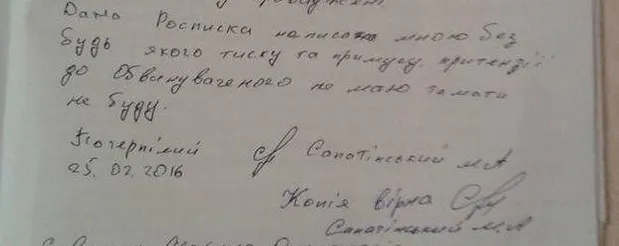 Дана Росписка написана мною без
будь якого тиску та примусу. притензії
до Обвинуваченого не маю та мати
не буду.
Потерпілий Сапотінський М.А
25.02.2016
Копія вірна
Сапотінський М.А